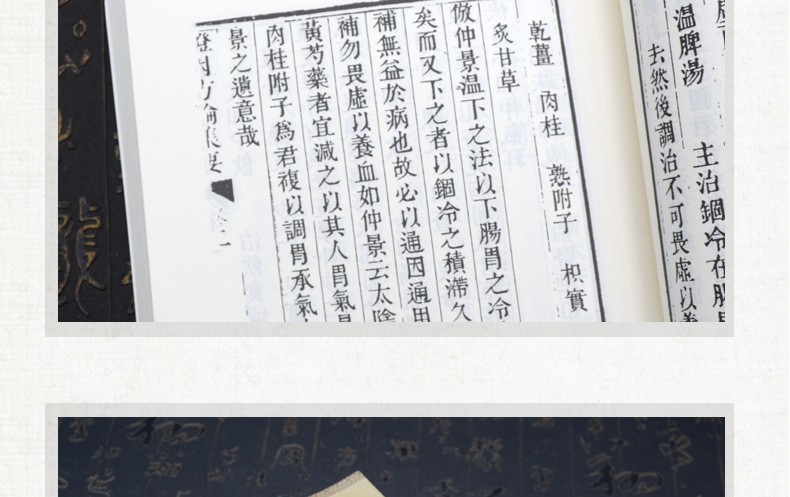 溫脾湯　主治錮冷在腸
去然後調治不可畏虛以養
乾薑　肉桂　熟附子　枳實
炙甘草
倣仲景溫下之法以下腸胃之冷
矣而又下之者以錮冷之積滯久
補無益於病也故必以通因通用
補勿畏虛以養血如仲景云太陰
黃芍藥者宜減之以其人胃氣
肉桂附子為君複以調胃承氣
景之遺意哉
證因方論集要　卷二